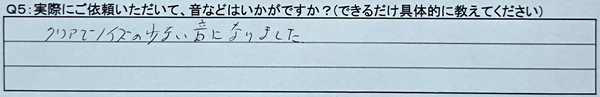 Q5:実際にご依頼いただいて、音などはいかがですか?(できるだけ具体的に教えてください)
クリアでノイズの少ない音になりました